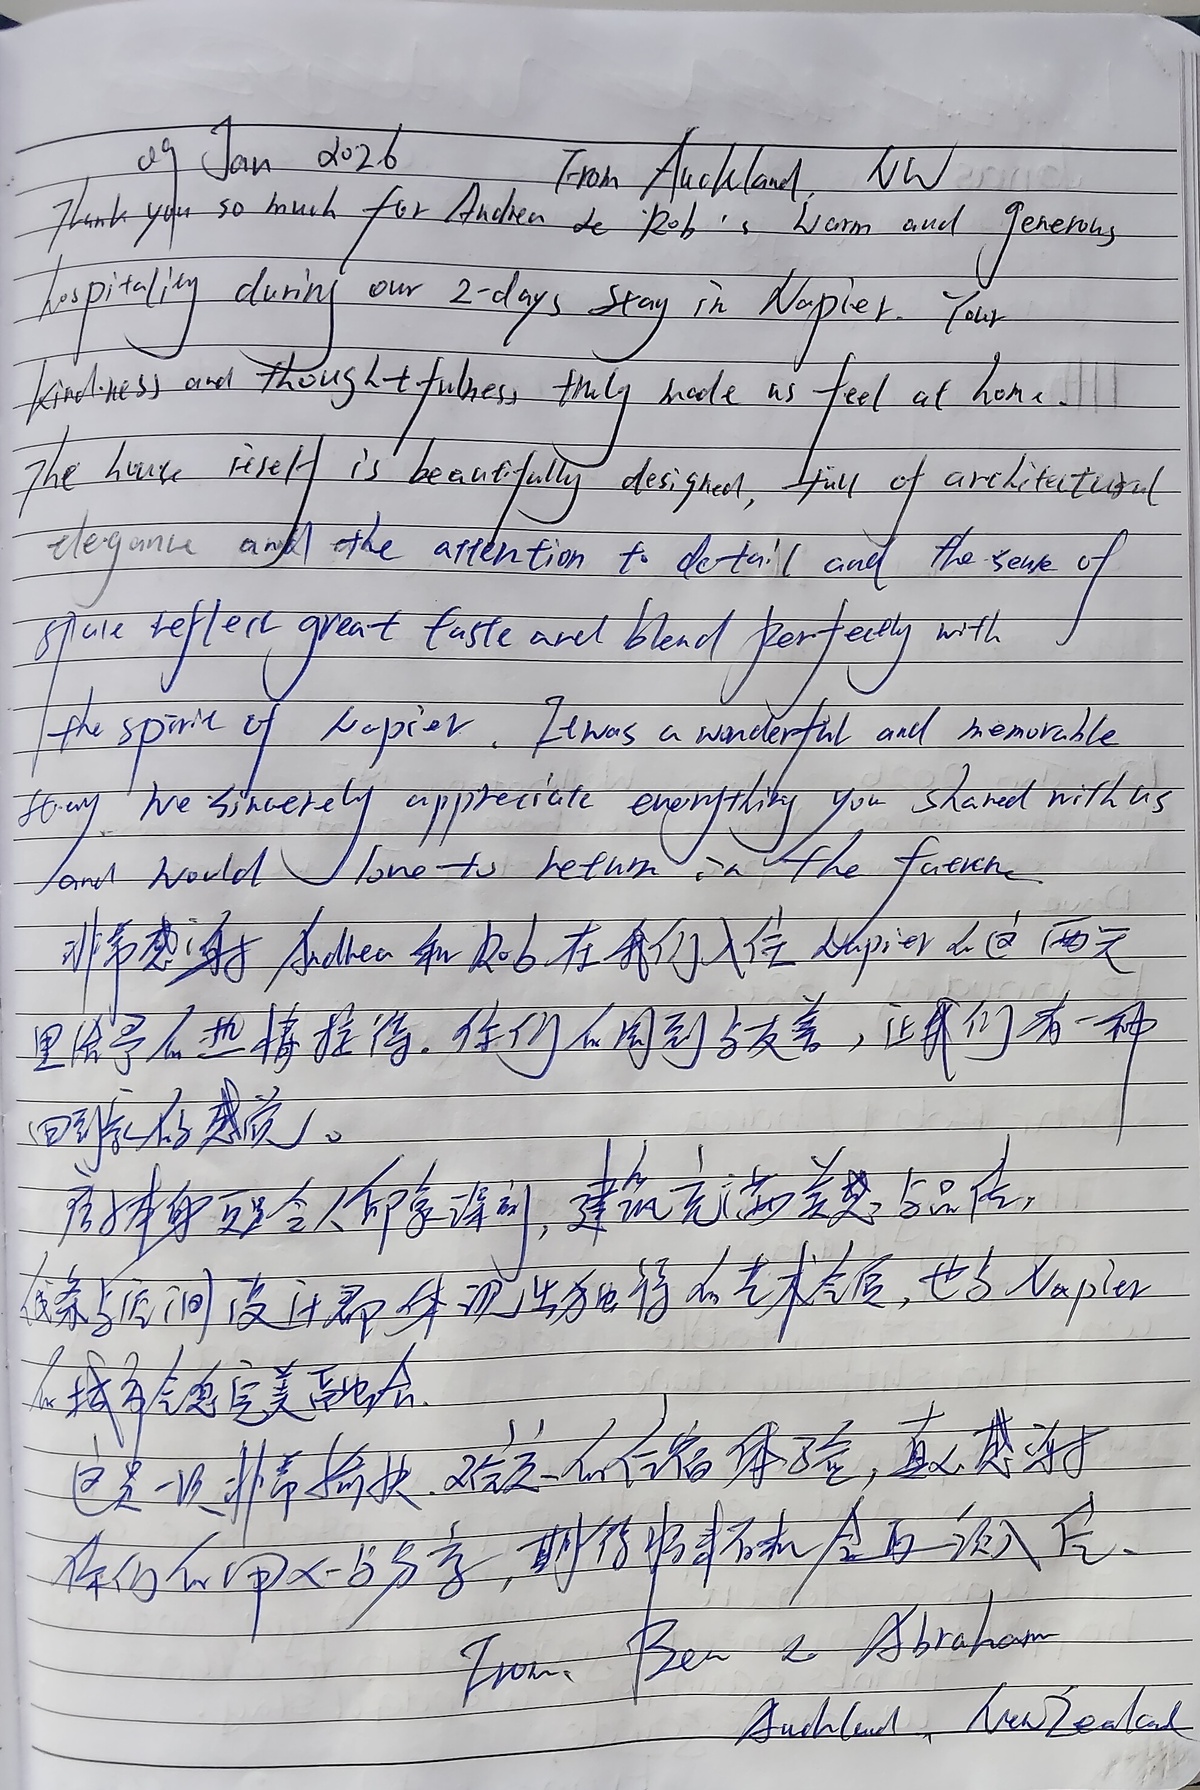 09 Jan 2026 From Auckland, NW
Thank you so much for Andrea & Rob's warm and generous
hospitality during our 2-days stay in Napier. Your
kindness and thoughtfulness truly made us feel at home.
The house itself is beautifully designed, full of architectural
elegance and the attention to detail and the sense of
space reflect great taste and blend perfectly with
the spirit of Napier. It was a wonderful and memorable
stay We sincerely appreciate everything you shared with us
and would love to return in the future
非常感谢 Andrea 和 Rob 在我们入住 Napier 的这两天
里给予的热情接待. 你们的周到与友善，让我们有一种
回到家的感觉。
房子本身更是令人印象深刻，建筑充满美感与品位，
线条与空间设计都体现出独特的艺术气质，也与 Napier
的城市气息完美融合.
这是一次非常愉快. 难忘的住宿体验，真心感谢
你们的用心与分享，期待将来有机会再一次入住.
From. Ben & Abraham
Auckland, New Zealand